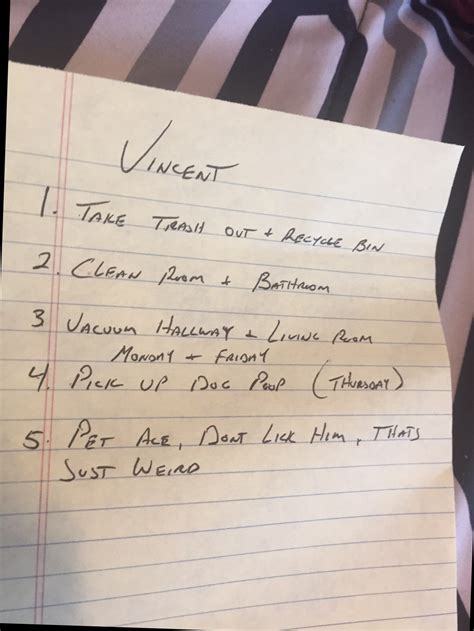 VINCENT
1. TAKE TRASH OUT + RECYCLE BIN
2. CLEAN ROOM + BATHROOM
3 VACUUM HALLWAY + LIVING ROOM
MONDAY + FRIDAY
4. PICK UP DOG POOP (THURSDAY)
5. PET ACE, DONT LICK HIM, THATS
JUST WEIRD